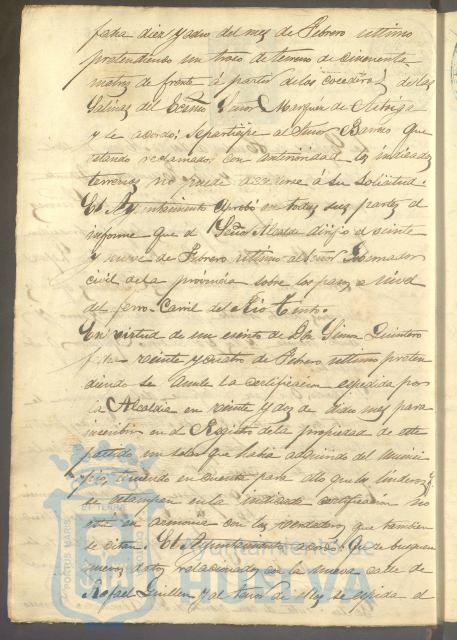 fada diez y ocho del mes de Febrero ultimo
pretendiendo un trozo de terreno de cincuenta
metros de frente á partir de los cocederos de las
Salinas del Ecsmo Señor Marques de
y se acordó: Se participe al Señor Barco que
estando reclamados con anterioridad los indicados
terrenos no puede accederse á su solicitud.
El Ayuntamiento aprobó en todas sus partes el
informe que el Señor Alcalde dirigió el veinte
y nueve de Febrero ultimo al Señor Gobernador
civil de la provincia sobre los pasos a nivel
del ferro-Carril del Rio Tinto.
En virtud de un escrito de Dn Simon Quintero
fecha veinte y cuatro de Febrero ultimo preten
diendo se anule la certificacion espedida por
la Alcaldia en veinte y dos de dicho mes para
inscribir en el Registro de la propiedad de este
partido un solar que habia adquirido del munici
pio, teniendo en cuenta para ello que los linderos
se estampan en la indicada certificacion no
está en armonia con los verdaderos que tambien
se citan. El Ayuntamiento acordó: Que se busquen
nuevos datos relacionados con la nueva calle de
Rafael Guillen y al Señor de espida el
PORTUS MARIS ET TERRE CUSTODIA
Ayuntamiento de
HUELVA